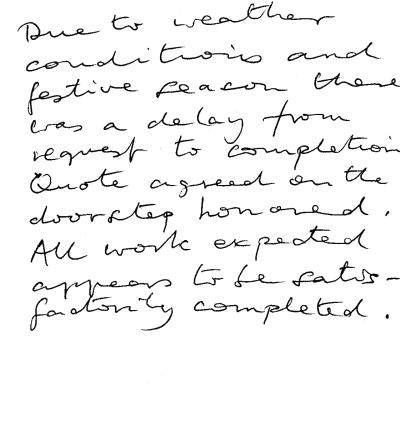 Due to weather
conditions and
festive season there
was a delay from
request to completion
Quote agreed on the
doorstep honored.
All work expected
appears to be satis-
factorily completed.